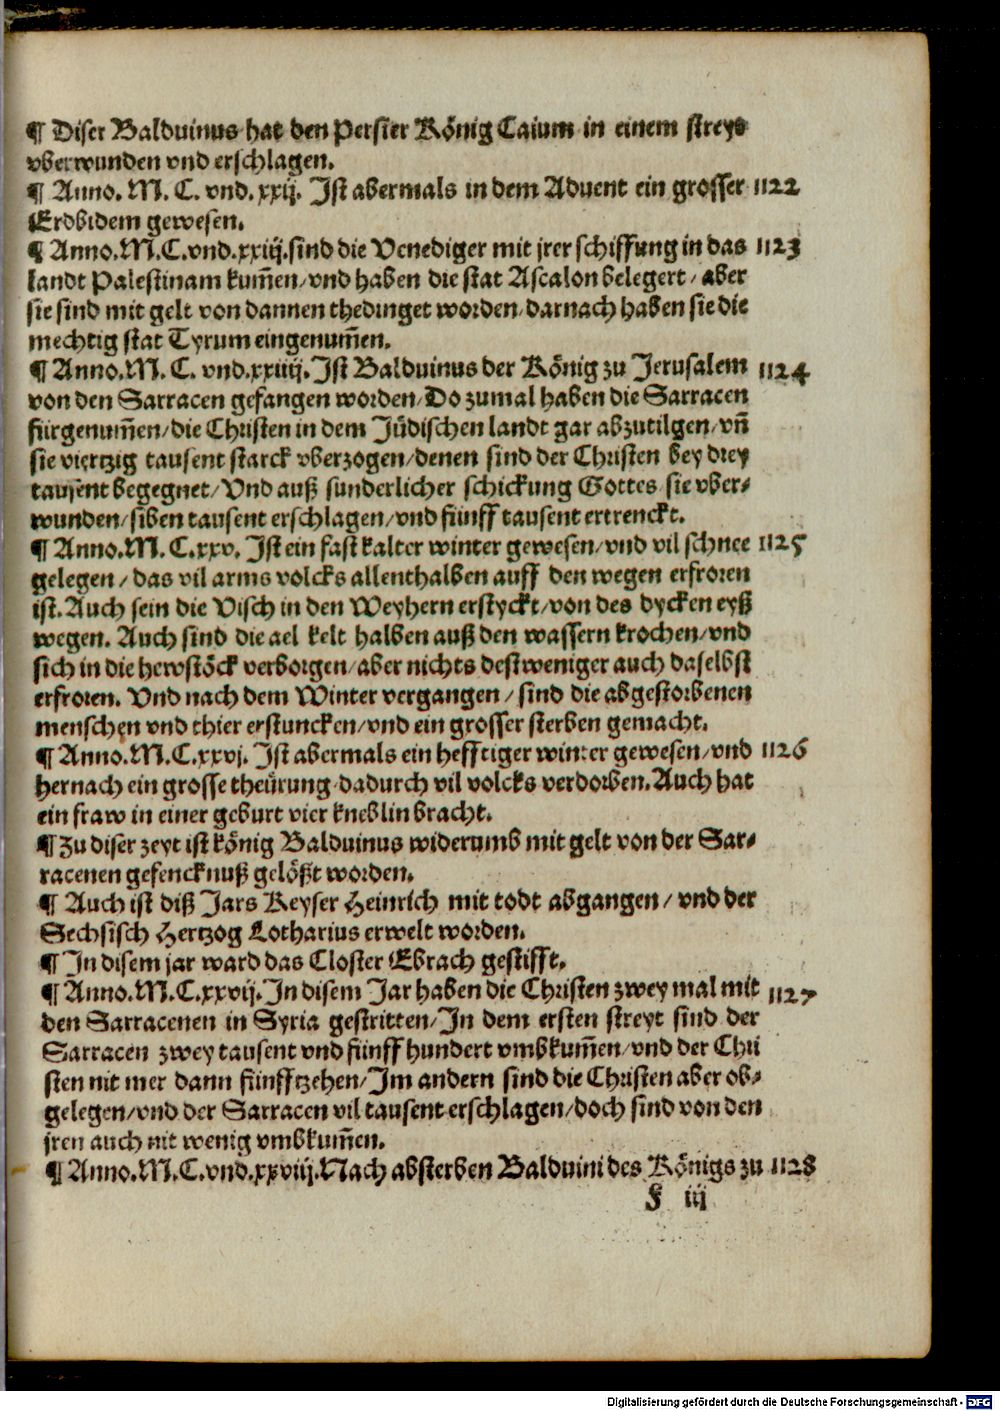 ¶ Diser Balduinus hat den Persier König Caium in einem streyt
vberwunden vnd erschlagen.
¶ Anno. M. C. vnd. xxij. Ist abermals in dem Aduent ein grosser 1122
Erdbidem gewesen.
¶ Anno.M.C.vnd.xxiij.sind die Venediger mit jrer schiffung in das 1123
landt Palestinam kum̃en/vnd haben die stat Ascalon belegert/aber
sie sind mit gelt von dannen thedinget worden/darnach haben sie die
mechtig stat Tyrum eingenum̃en.
¶ Anno.M.C. vnd.xxiiij.Ist Balduinus der König zu Jerusalem 1124
von den Sarracen gefangen worden/Do zumal haben die Sarracen
fürgenum̃en/die Christen in dem Jüdischen landt gar abzutilgen/vñ
sie viertzig tausent starck vberzogen/denen sind der Christen bey drey
tausent begegnet/Vnd auß sunderlicher schickung Gottes sie vber-
wunden/siben tausent erschlagen/vnd fünff tausent ertrenckt.
¶ Anno.M. C.xxv. Ist ein fast kalter winter gewesen/vnd vil schnee 1125
gelegen/das vil arms volcks allenthalben auff den wegen erfroren
ist. Auch sein die Visch in den Weyhern erstyckt/von des dycken eyß
wegen. Auch sind die ael kelt halben auß den wassern krochen/vnd
sich in die hewstöck verborgen/aber nichts destweniger auch daselbst
erfroren. Vnd nach dem Winter vergangen/sind die abgestorbenen
menschen vnd thier erstuncken/vnd ein grosser sterben gemacht.
¶ Anno.M.C.xxvj. Ist abermals ein hefftiger winter gewesen/vnd 1126
hernach ein grosse theürung/dadurch vil volcks verdorben. Auch hat
ein fraw in einer geburt vier kneblin bracht.
¶ Zu diser zeyt ist könig Balduinus widerumb mit gelt von der Sar-
racenen gefencknuß gelößt worden.
¶ Auch ist diß Jars Keyser Heinrich mit todt abgangen/vnd der
Sechsisch Hertzog Lotharius erwelt worden.
¶ In disem jar ward das Closter Ebrach gestifft.
¶ Anno.M.C.xxvij.In disem Jar haben die Christen zwey mal mit 1127
den Sarracenen in Syria gestritten/In dem ersten streyt sind der
Sarracen zwey tausent vnd fünff hundert vmbkum̃en/vnd der Chri
sten nit mer dann fünfftzehen/Im andern sind die Christen aber ob-
gelegen/vnd der Sarracen vil tausent erschlagen/doch sind von den
jren auch nit wenig vmbkum̃en.
¶ Anno.M.C.vnd.xxviij.Nach absterben Balduini des Königs zu 1128
f iij
Digitalisierung gefördert durch die Deutsche Forschungsgemeinschaft - DFG